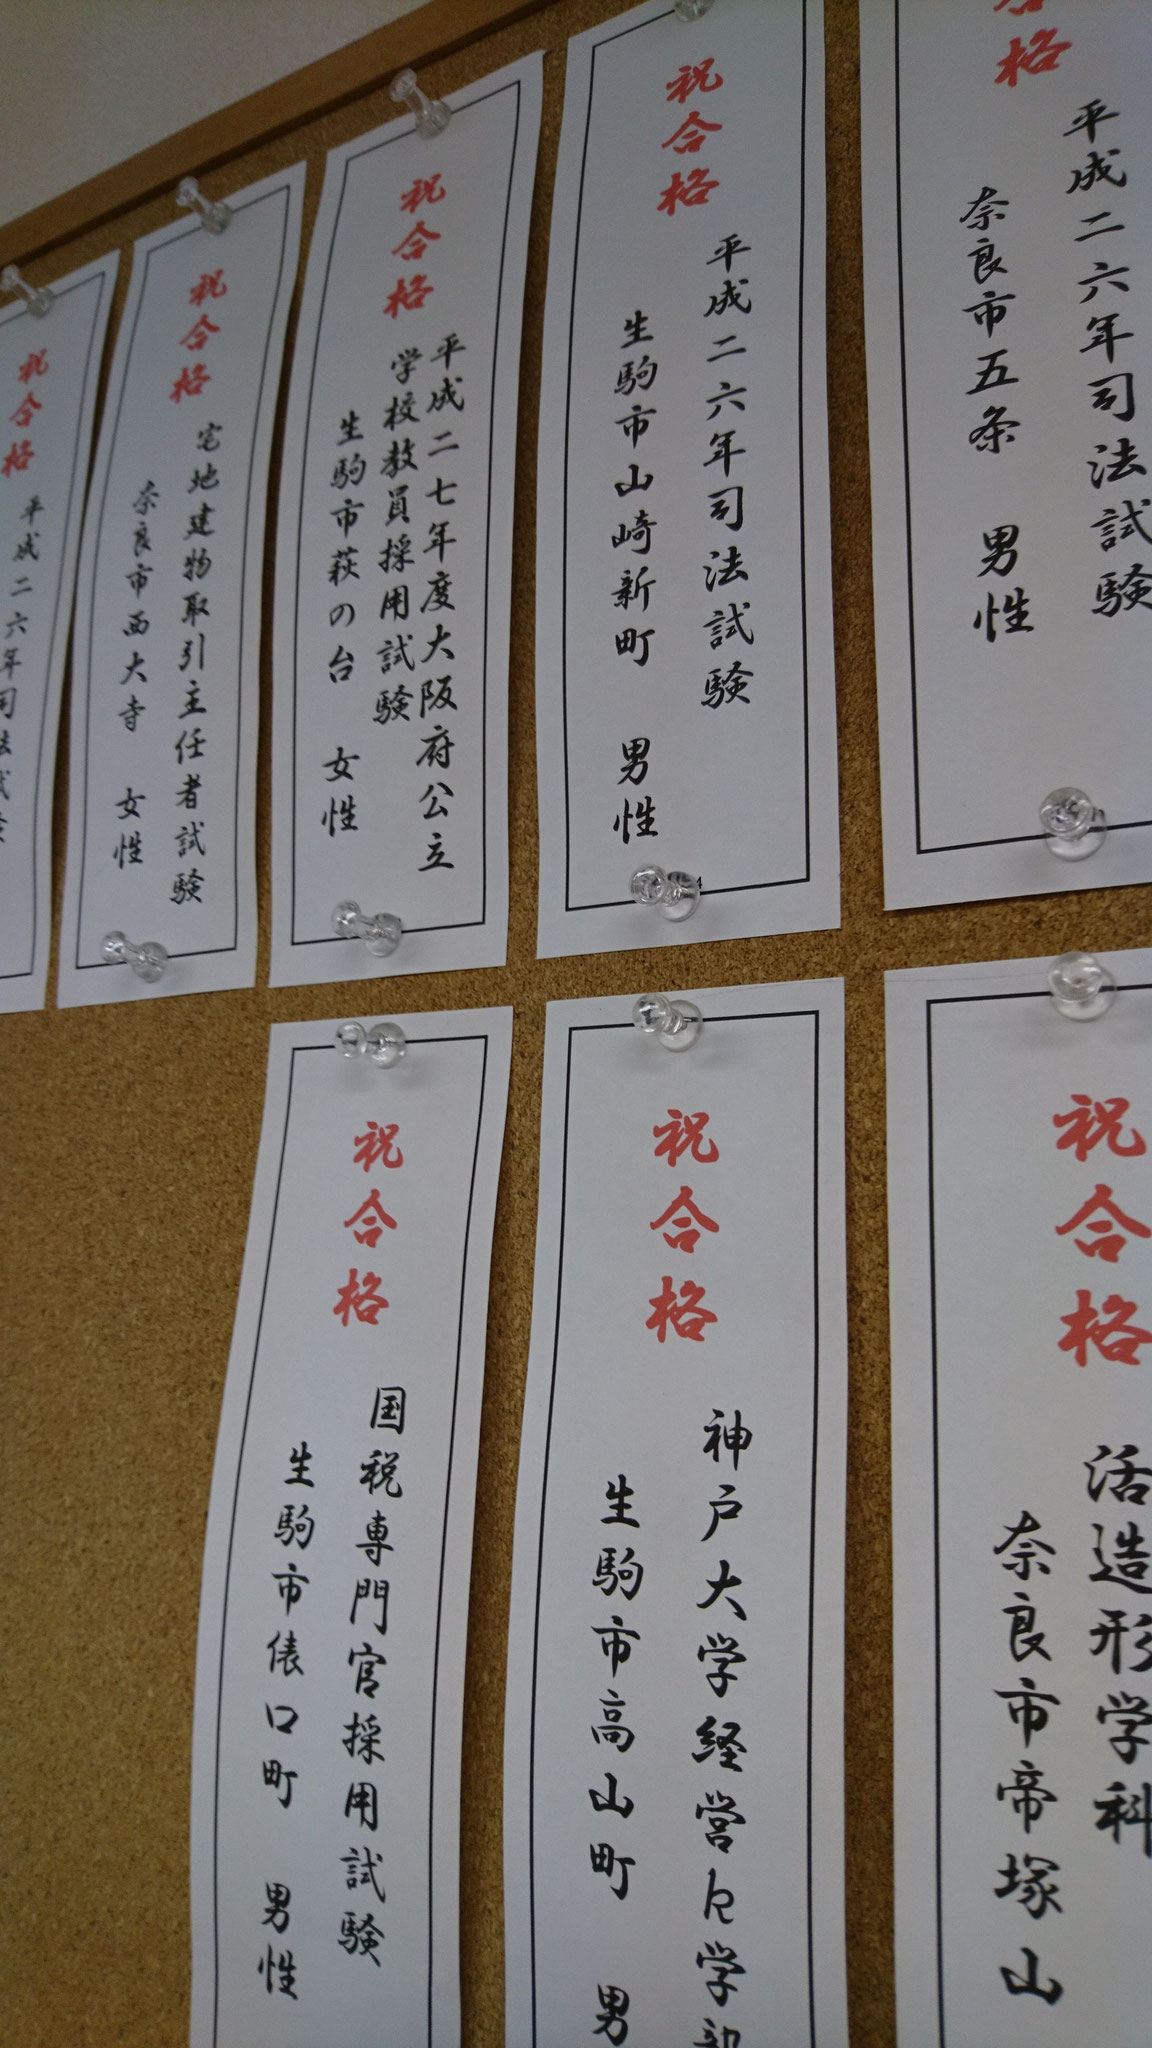 合格
平成二六年司法試験
奈良市五条 男性
祝合格
平成二六年司法試験
生駒市山崎新町 男性
祝合格
平成二七年度大阪府公立
学校教員採用試験
生駒市萩の台 女性
祝合格
宅地建物取引主任者試験
奈良市西大寺 女性
祝合格
平成二六年司法試験
祝合格
活造形学科
奈良市帝塚山
祝合格
神戸大学経営学部
生駒市高山町 男
祝合格
国税専門官採用試験
生駒市俵口町 男性